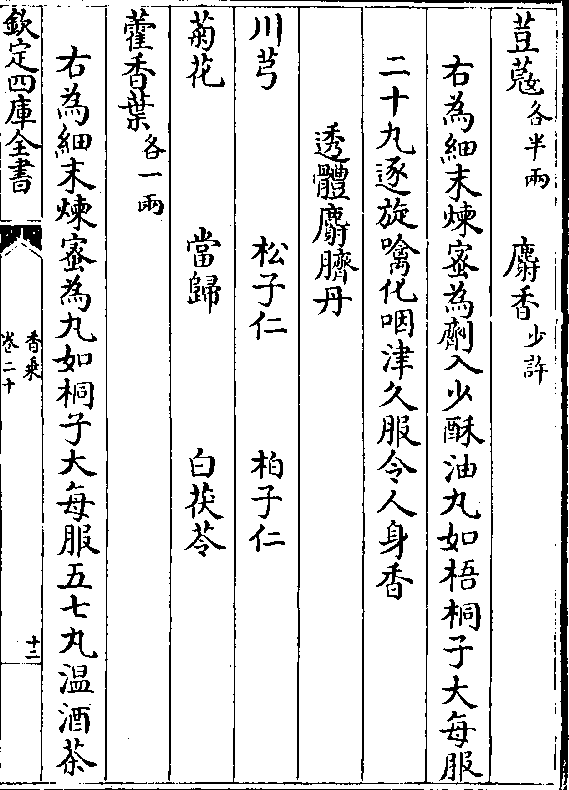 荳蔲各半兩 麝香少許
右為細末煉宻為劑入少酥油丸如梧桐子大每服
二十丸逐旋噙化咽津久服令人身香
透體麝臍丹
川芎 松子仁 柏子仁
菊花 當歸 白茯苓
藿香葉各一兩
右為細末煉宻為丸如桐子大每服五七丸温酒茶
欽定四庫全書
香乘
卷二十
十二